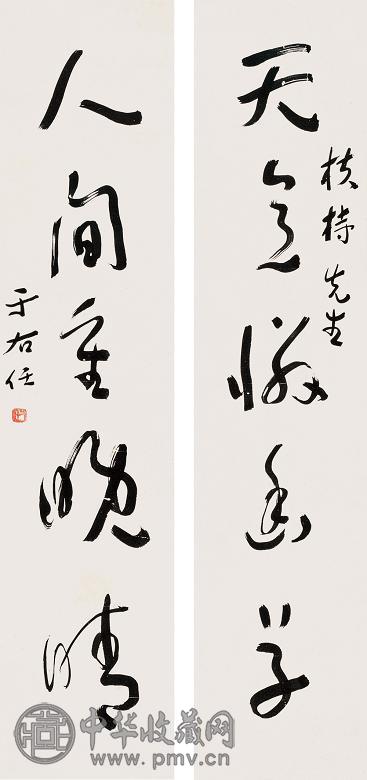 天意憐幽草
先生
人間重晚晴
于右任
中华收藏网
www.pmv.cn